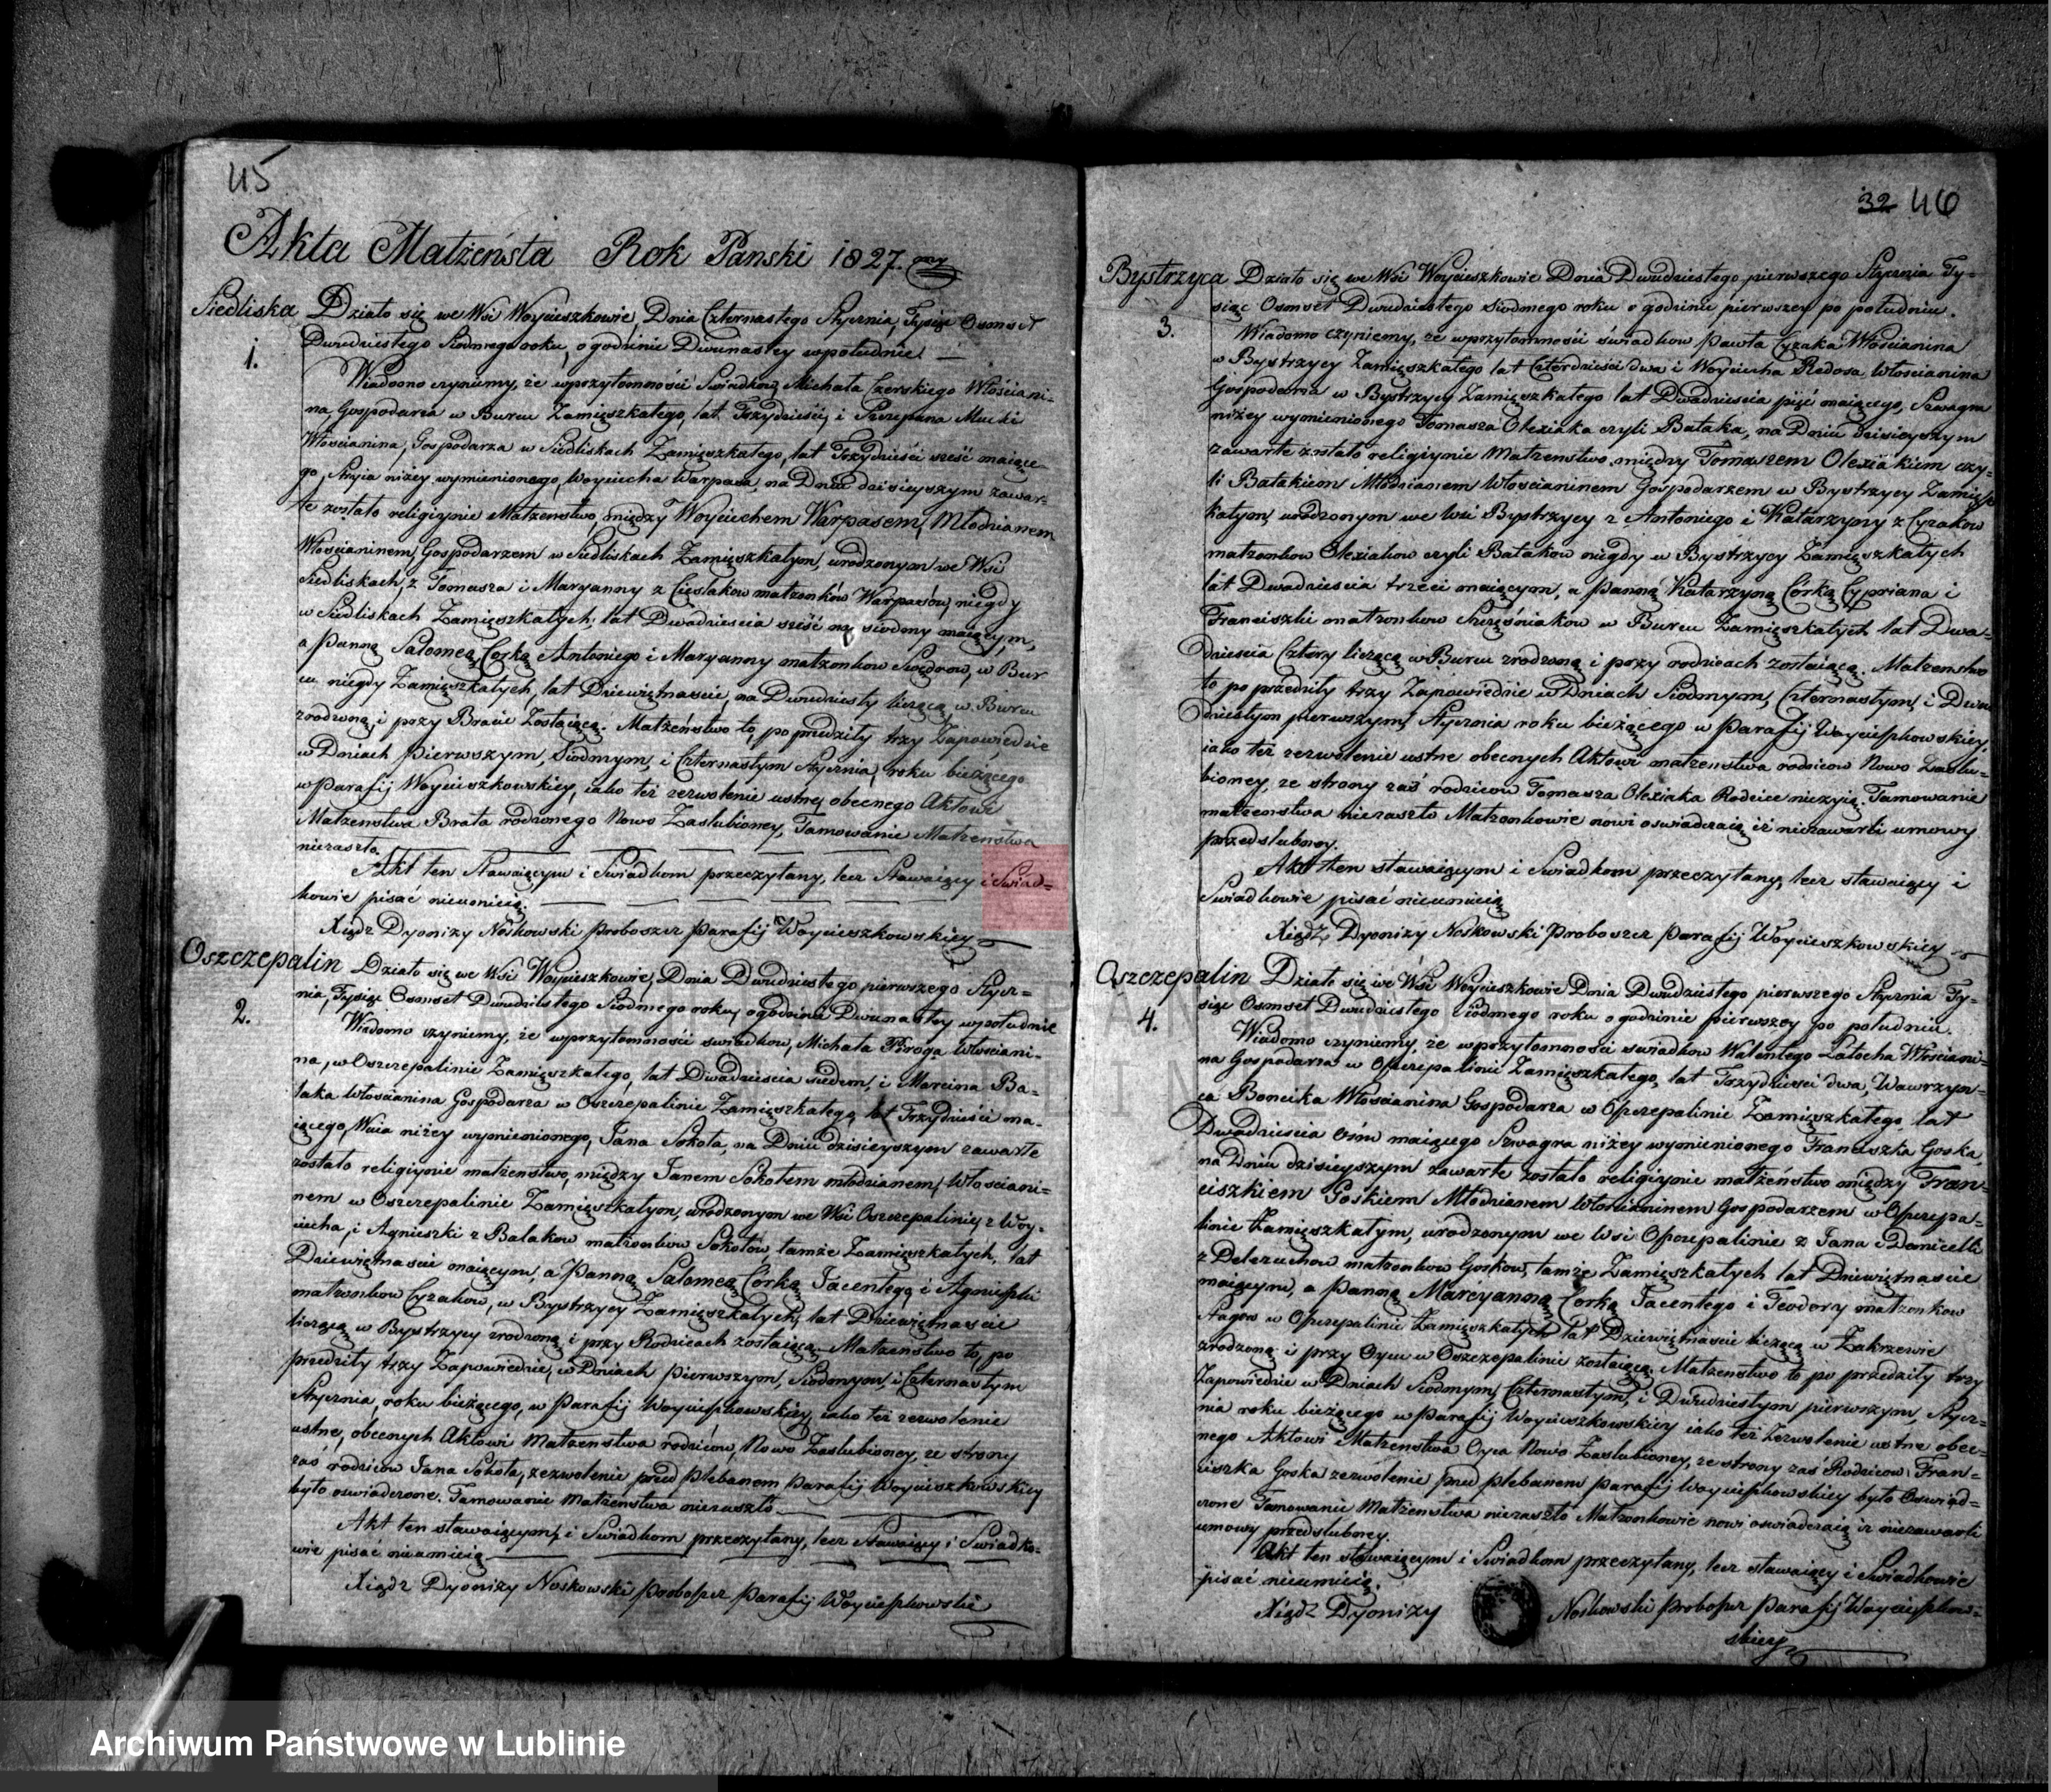 45
Akta Małżeństa Rok Panski 1827.
Siedliska Działo się we Wsi Woyciszkowie, Dnia Czternastego Stycznia, Tysiąc Osmset
1. Dwudziestego Siodmego roku, o godzinie Dwunastey wpołudnie. —
Wiadomo czyniemy, że wprzytomności Swiadkow, Michała Czerskiego Włościani-
na, Gospodarza w Burcu Zamięszkałego, lat Trzydzieści, i Szczepana Mucki
Włościanina, Gospodarza w Siedliskach Zamięszkałego, lat Trzydzieści sześć maiące-
go, Stryia niżey wymienionego, Woyciecha Warpasa, na Dniu dzisieyszym zawar-
te zostało religiynie Małzenstwo, między Woyciechem Warpasem, Młodzianem
Włościaninem, Gospodarzem w Siedliskach Zamięszkałym, urodzonym we Wsi
Siedliskach, z Tomasza i Maryanny z Cieslakow matzonków Warpasów, niegdy
w Siedliskach Zamięszkałych, lat Dwadziescia sześć na siodmy maiącym,
a Panną Salomeą Corką Antoniego i Maryanny matzonkow, w Bur
cu niegdy Zamięszkałych, lat Dziewiętnascie, na Dwudziesty liczącą w Burcu
zrodzoną i przy Bracie Zostaiącą. Małżeństwo to, po przedziły trzy Zapowiedzie
w Dniach Pierwszym, Siodmym, i Czternastym Stycznia, roku bieżącego
w Parafij Woycieszkowskiey, iako też zezwolenie ustne obecnego Aktowi
Małzenstwa Brata rodzonego Nowo Zaslubioney, Tamowanie Małzenstwa
nieraszło.
Akt ten Stawaiącym i Swiadkom przeczytany, lecz Stawaiący i Swiad-
kowie pisać nieumieią.
Xiądz Dyonizy Noskowski Proboszcz Parafij Woycieszkowskiey
Oszczepalin Działo się we Wsi Woycieszkowie, Dnia Dwudziestego pierwszego Stycz-
2. nia, Tysiąc Osmset Dwudziestego Siodmego roku, o godzinie Dwunastey wpołudnie
Wiadomo czyniemy, że wprzytomności swiadkow, Michała Piroga Włosciani-
na, w Oszczepalinie Zamięszkałego, lat Dwadziescia siedem, i Marcina Ba-
łaka Włościanina Gospodarza w Oszczepalinie Zamięszkałego, lat Trzydzieści ma-
iącego, Wuia niżey wymienionego, Jana Sokoła, na Dniu dzisieyszym zawarte
zostało religiynie matzenstwo, między Janem Sokołem młodzianem, Włosciani-
nem w Oszczepalinie Zamięszkałym, urodzonym we Wsi Oszczepalinie, z Woy-
ciecha, i Agnieszki z Bałakow matzonków Sokołów, tamże Zamięszkałych, lat
Dziewiętnascie maiącym, a Panną Salomeą Corką Jacentego, i Agnieszki
matzonkow Cyzakow, w Bystrzycy Zamięszkałych, lat Dziewiętnascie
liczącą w Bystrzycy zrodzoną i przy Rodzicach zostaiącą. Małzenstwo to, po
przedziły trzy Zapowiedzie, w Dniach Pierwszym, Siodmym, i Czternastym
Stycznia, roku bieżącego, w Parafij Woycieszkowskiey, iako też zezwolenie
ustne, obecnych Aktowi Małzenstwa rodziców, Nowo Zaslubioney, ze strony
zaś rodziców Jana Sokoła, zezwolenie przed Plebanem Parafij Woycieszkowskiey
było oswiadczone. Tamowanie Małzenstwa nieraszło.
Akt ten stawaiącym, i Swiadkom przeczytany, lecz Stawaiący i Swiadko-
wie pisać nieumieią
Xiądz Dyonizy Noskowski Proboszcz Parafij Woycieszkowski
32 46
Bystrzyca Działo się we Wsi Woycieszkowie Dnia Dwudziestego pierwszego Stycznia Ty-
siąc Osmset Dwudziestego siodmego roku o godzinie pierwszey po południu.
3. Wiadomo czyniemy, że wprzytomności swiadkow Pawła Cyzaka Włościanina
w Bystrzycy Zamięszkałego lat Czterdzieści dwa i Woyciecha Redosa Włoscianina
Gospodarza w Bystrzycy Zamięszkałego lat Dwadziescia pięć maiącego, Szwagra
niżey wymienionego Tomasza Olexiaka czyli Bałaka, na Dniu dzisieyszym
zawarte zostało religiynie Matzenstwo między Tomaszem Olexiakiem czy-
li Bałakiem Młodzianem Włoscianinem Gospodarzem w Bystrzycy Zamięsz
kałym, urodzonym we Wsi Bystrzycy z Antoniego i Katarzyny z Cyzakow
matzonkow Olexiakow czyli Bałakow niegdy w Bystrzycy Zamięszkałych
lat Dwadziescia trzeci maiącym, a Panną Katarzyną Corką Cypriana i
Franciszki matzonkow Szczęśniakow w Burcu Zamięszkałych lat Dwa-
dziescia Cztery liczącą w Burcu zrodzoną i przy rodzicach zostaiącą. Matzenstwo
to po przedziły trzy Zapowiedzie w Dniach Siodmym, Czternastym i Dwu
dziestym pierwszym, Stycznia roku bieżącego w Parafij Woycieszkowskiey,
iako też zezwolenie ustne obecnych Aktowi matzenstwa rodzicow Nowo Zaslu-
bioney, ze strony zaś rodzicow Tomasza Olexiaka Rodzice nieżyią. Tamowanie
matzenstwa nieraszło Matzonkowie nowi oswiadczaią iż niezawarli umowy
przedslubney.
Akt ten stawaiącym i Swiadkom przeczytany, lecz stawaiący i
Swiadkowie pisać nieumieią
Xiądz Dyonizy Noskowski Proboszcz Parafij Woycieszkowskiey
Oszczepalin Działo się we Wsi Woycieszkowie Dnia Dwudziestego pierwszego Stycznia Ty-
4. siąc Osmset Dwudziestego Siodmego roku o godzinie pierwszey po południu.
Wiadomo czyniemy, że wprzytomnosci swiadkow Walentego Latocha Włosciani-
na Gospodarza w Oszczepalinie Zamięszkałego, lat Trzydziesci dwa, Wawrzyn-
ca Boncika Włoscianina Gospodarza w Oszczepalinie Zamięszkałego, lat
Dwadziescia ośm maiącego Szwagra niżey wymienionego Franciszka Goska,
na Dniu dzisieyszym zawarte zostało religiynie małżeństwo między Fran-
ciszkiem Goskiem Młodzianem Włoscianinem Gospodarzem w Oszczepa-
linie Zamięszkałym, urodzonym we Wsi Oszczepalinie z Jana i Danicelli
z matzonkow Goskow, tamże Zamięszkałych lat Dziewiętnascie
maiącym, a Panną Maryanną Corką Jacentego i Teodory matzonkow
w Oszczepalinie Zamięszkałych lat Dziewiętnascie liczącą w Zakrzewie
zrodzoną i przy Oycu w Oszczepalinie zostaiącą. Matzenstwo to po przedziły trzy
Zapowiedzie w Dniach Siodmym, Czternastym, i Dwudziestym pierwszym, Stycz-
nia roku bieżącego w Parafij Woycieszkowskiey iako też Zezwolenie ustne obec-
nego Aktowi Matzenstwa Oyca Nowo Zaslubioney, ze strony zaś Rodzicow Fran-
ciszka Goska zezwolenie przed Plebanem Parafij Woycieszkowskiey było Oswiad-
czone Tamowanie Matzenstwa nieraszło Matzonkowie nowi oswiadczaią iż niezawarli
umowy przedslubney.
Akt ten stawaiącym i Swiadkom przeczytany, lecz stawaiący i Swiadkowie
pisać nieumieią.
Xiądz Dyonizy Noskowski Proboszcz Parafij Woycieszkow-
skiey
Archiwum Państwowe w Lublinie